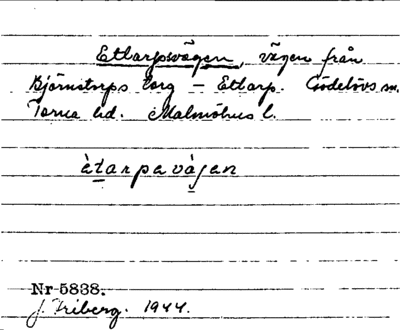 Ettarpsvägen, vägen från
Björnstorps torg – Ettarp. Gödelövs sn.
Torna hd. Malmöhus l.
ètarpavá̱gen
Nr 5838.
J. Friberg. 1944.